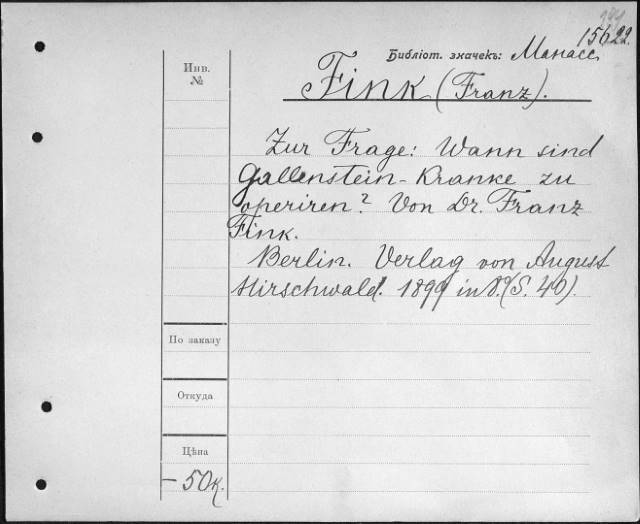 15622.
Библіот. значекъ: Манасс.
Инв.
№
Fink (Franz).
Zur Frage: Wann sind
Gallenstein-Kranke zu
operiren? Von Dr. Franz
Fink.
Berlin. Verlag von August
Hirschwald. 1899 in 8.° (S. 40).
По заказу
Откуда
Цѣна
- 50к.